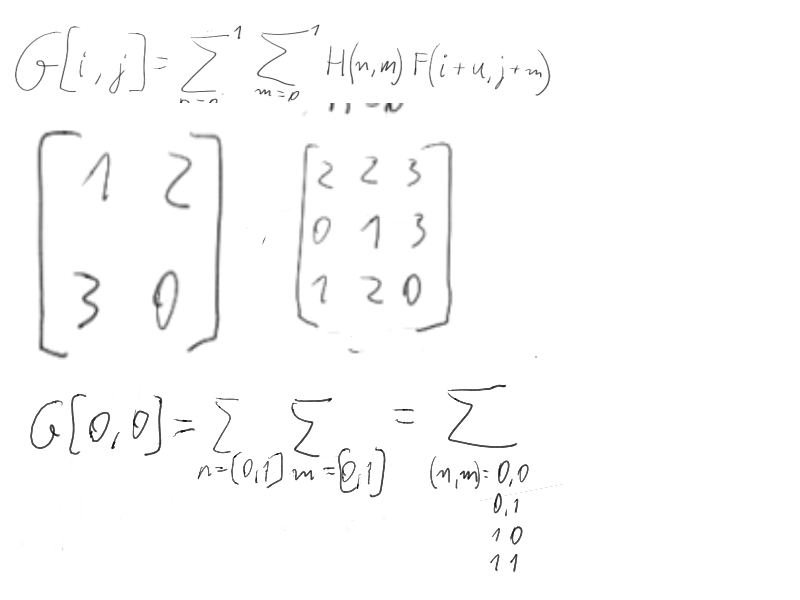 G[i,j] = ∑ n=0 1 ∑ m=0 1 H(n,m) F(i+u,j+m)
[1 2 · [2 2 3
0 1 3
3 0] 1 2 0]
G[0,0] = ∑ n=[0,1] ∑ m=[0,1] = ∑ (n,m)= 0,0
0,1
1 0
1 1